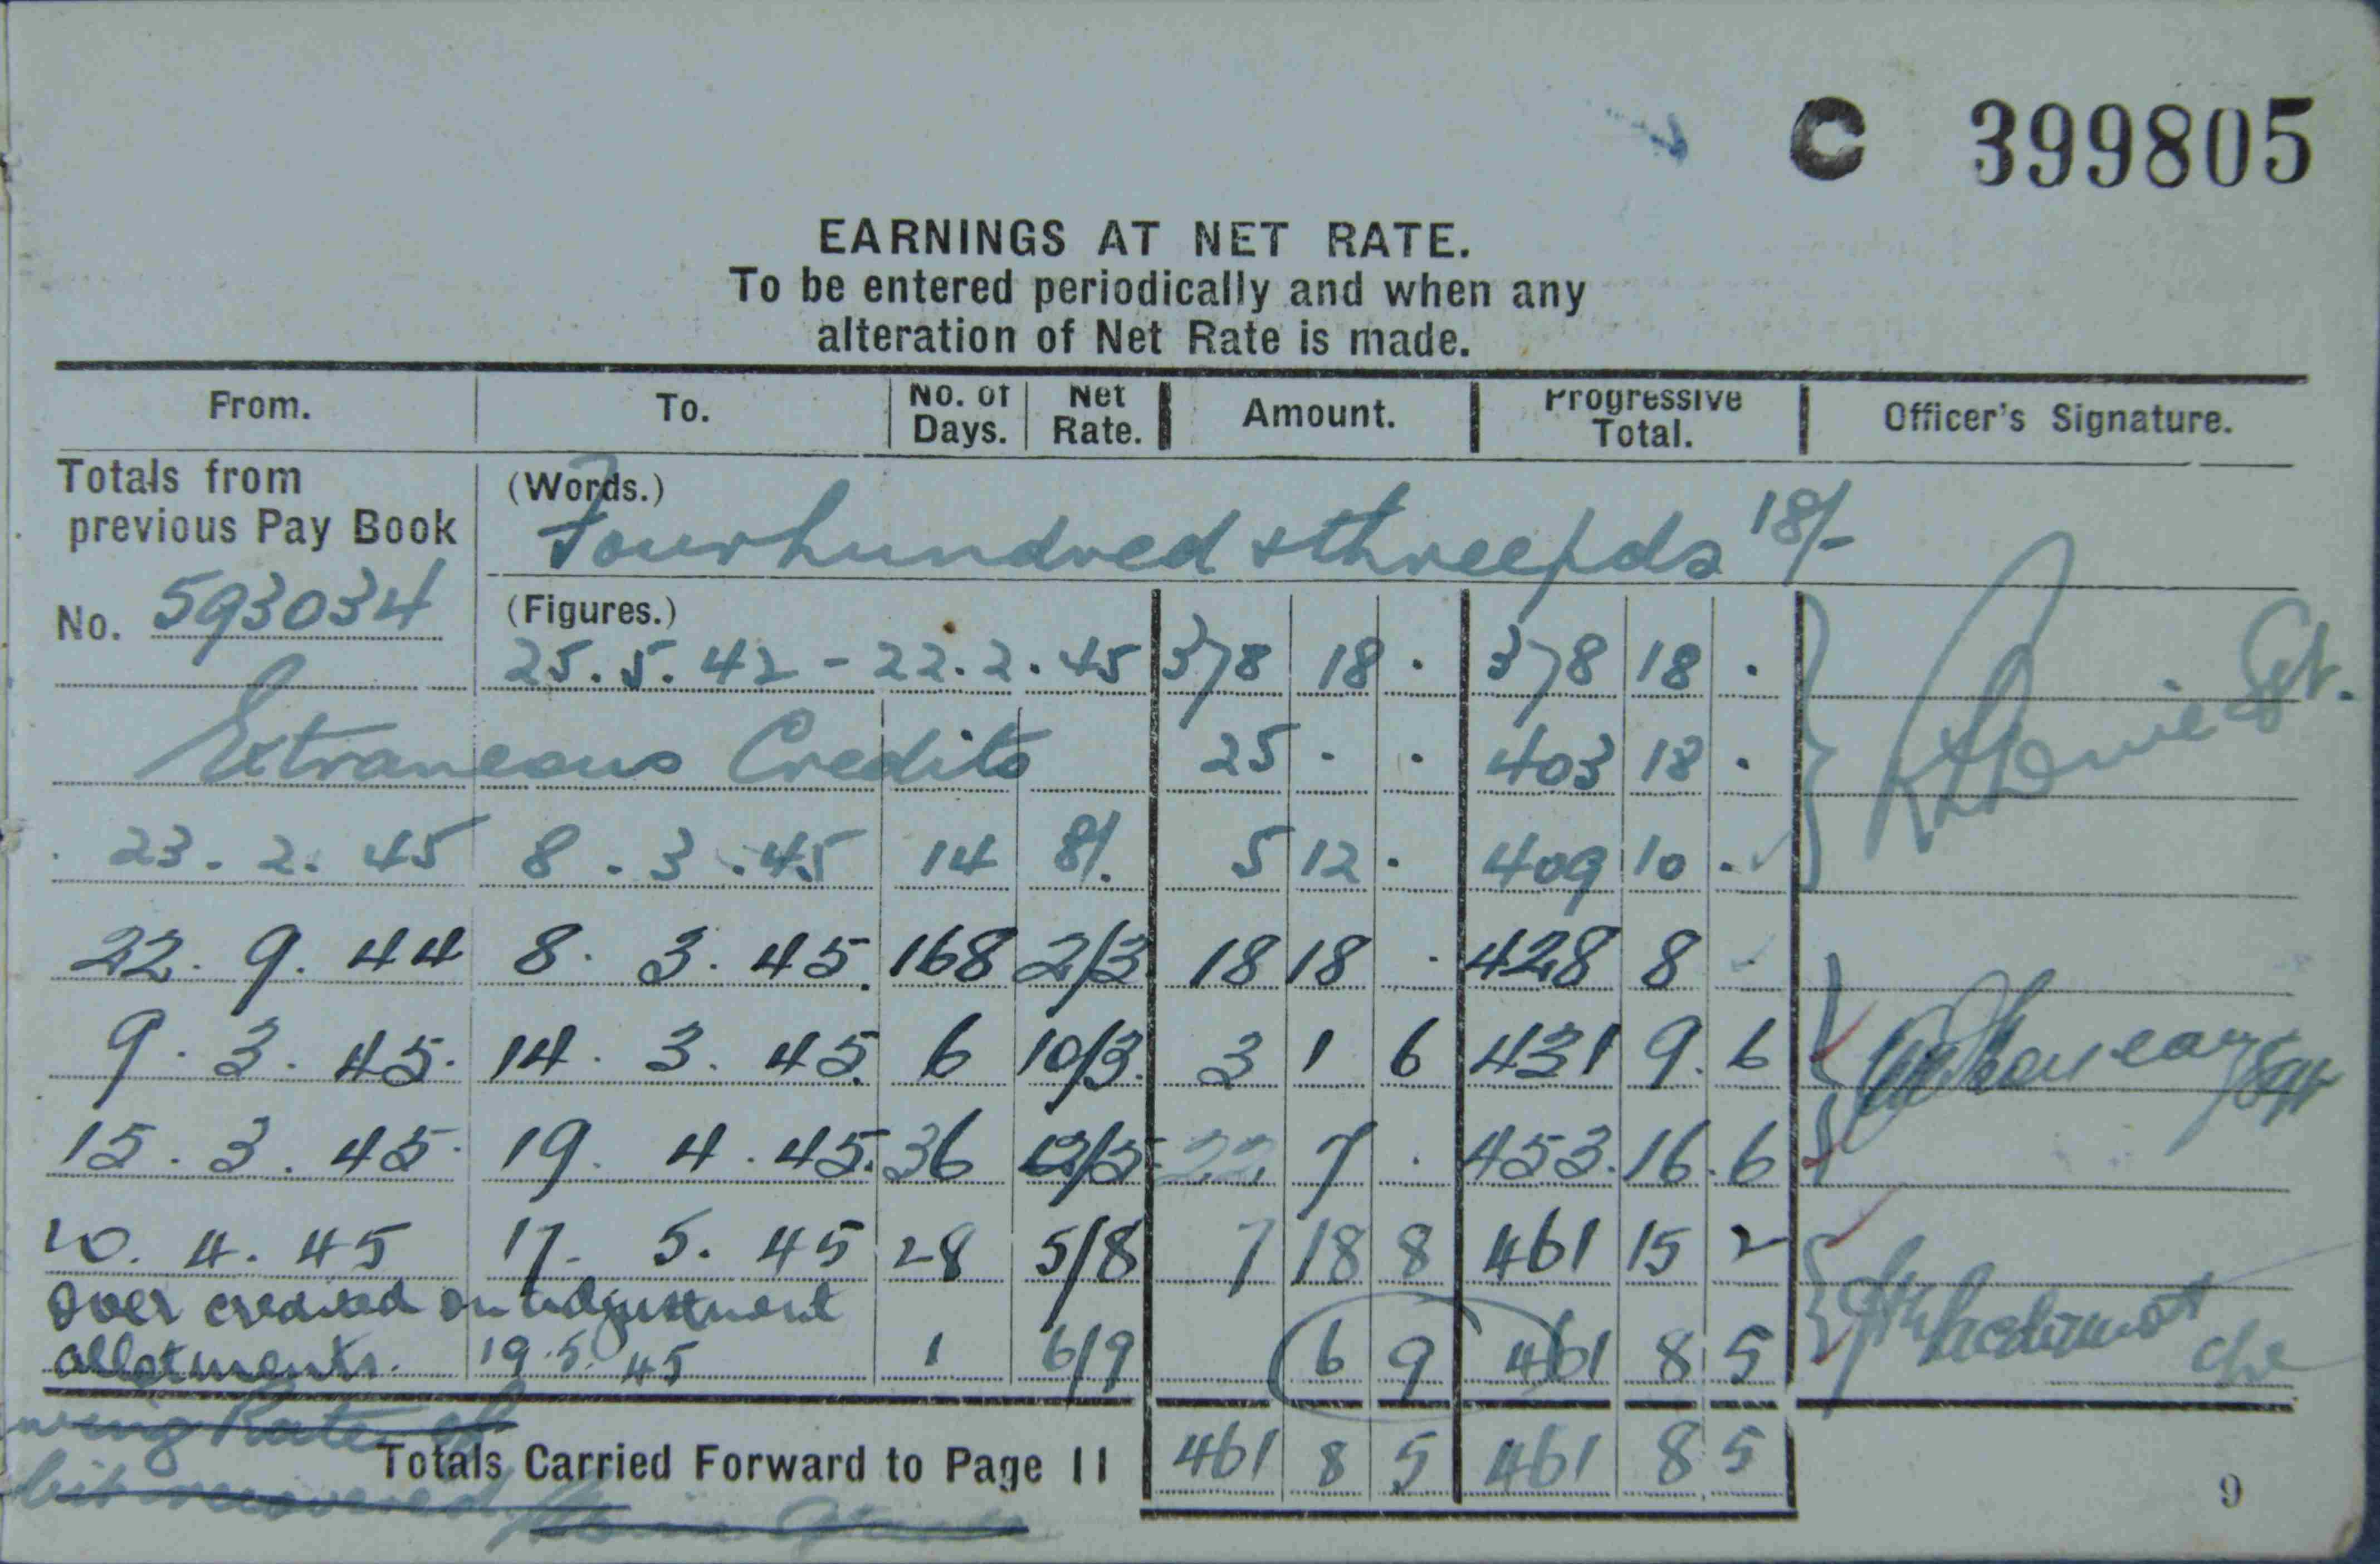 C 399805
EARNINGS AT NET RATE.
To be entered periodically and when any
alteration of Net Rate is made.
From. To. No. of Days. Net Rate. Amount. Progressive Total. Officer's Signature.
Totals from previous Pay Book (Words.) Four hundred & three pds 18/-
No. 593034 (Figures.)
25.5.42 - 22.2.45 378 18 . 378 18 .
Extraneous Credits 25 . . 403 18 .
23.2.45 8.3.45 14 8/. 5 12 . 409 10 .
22.9.44 8.3.45. 168 2/3 18 18 . 428 8 -
9.3.45. 14.3.45. 6 10/3. 3 1 6 431 9.6
15.3.45. 19.4.45. 36 22 7 . 453.16.6
20.4.45 17.5.45 28 5/8 7 18 8 461 15 2
Over credited on adjustment
allotments. 19.5.45 1 6/9 6 9 461 8 5
Totals Carried Forward to Page 11 461 8 5 461 8 5
9